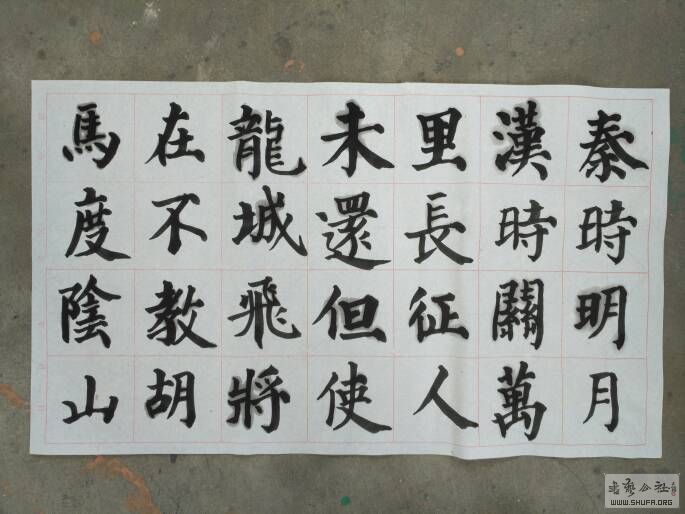 秦時明月
漢時關萬
里長征人
未還但使
龍城飛將
在不教胡
馬度陰山
WWW.SHUFA.ORG